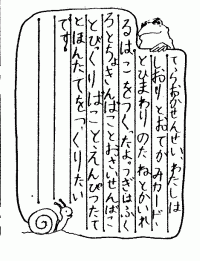 てらおかせんせい、わたしは
しおりとおてがみカード
とひまわりのたねとかいれ
るは、こをつくったよ。つぎはふく
ろとちょきんばことおさいせんばこ
とびくりばことえんぴつたて
とほんたてをつくりたい
です。